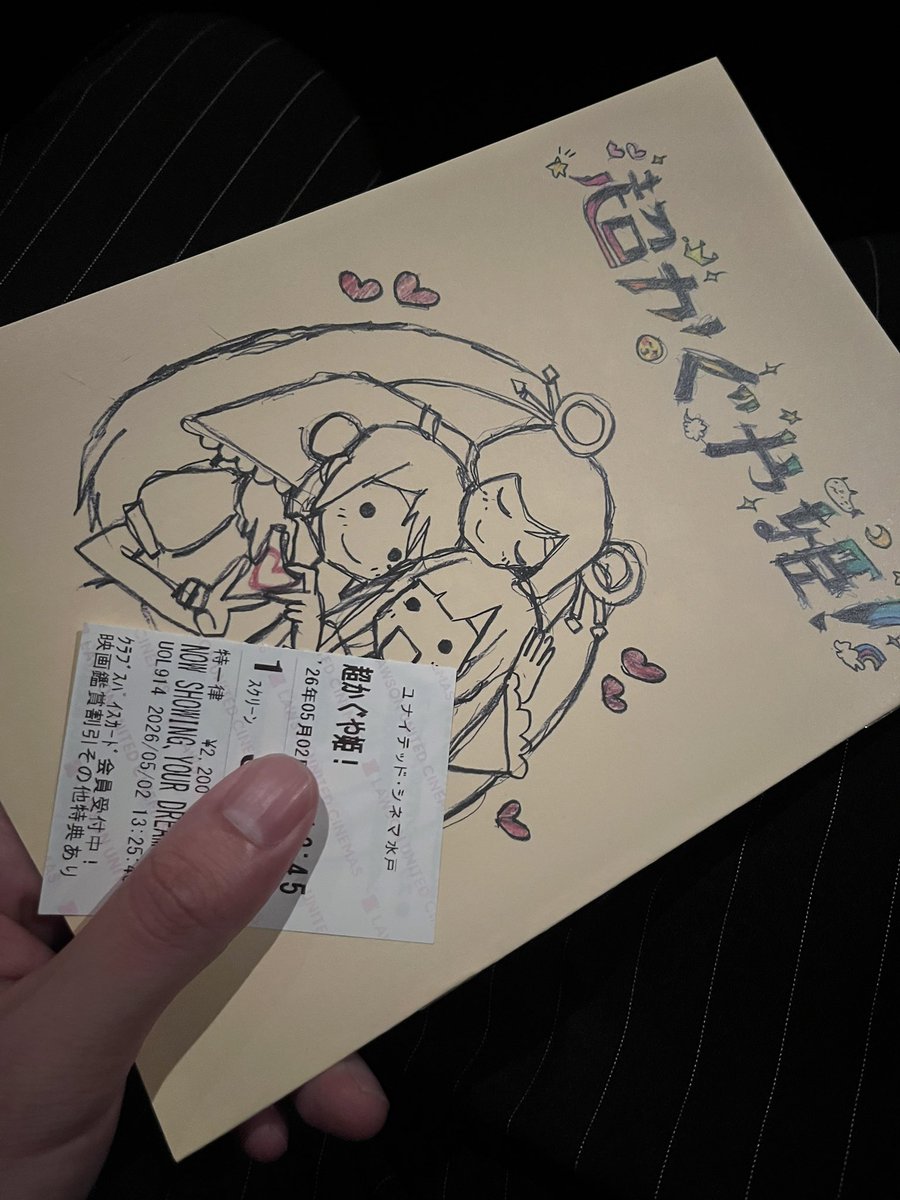 超かぐや姫!
ユナイテッド・シネマ水戸
超かぐや姫!
'26年05月02
:45
1 スクリーン
特一律 ¥2,200
NOW SHOWING, YOUR DREAM
UOL914 2026/05/02 13:25:4
クラブスパイスカード会員受付中!
映画鑑賞割引その他特典あり